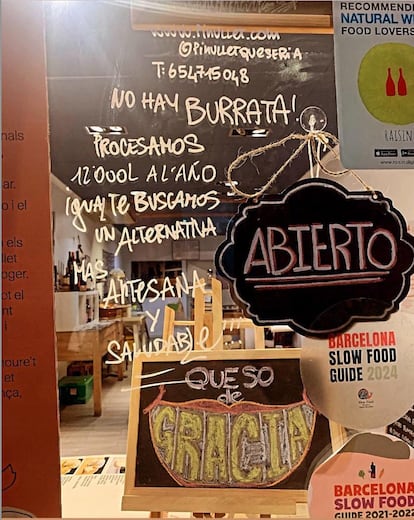 www.Pinullet.com
@Pinulletqueseria
T: 654715048
NO HAY BURRATA!
PROCESAMOS
12'000L AL AÑO
IGUAL TE BUSCAMOS
UN ALTERNATIVA
MAS
ARTESANA
Y
SALUDABLE!!!
ABIERTO
QUESO
de
GRACIA
RECOMMENDE
NATURAL W
FOOD LOVERS
RAISIN
BARCELONA
SLOW FOOD
GUIDE 2024
BARCELONA
SLOW FOOD
GUIDE 2021-2022
nals
ar.
o i el
els
llet
oger.
ot el
nt
i
oure't
et
nça,